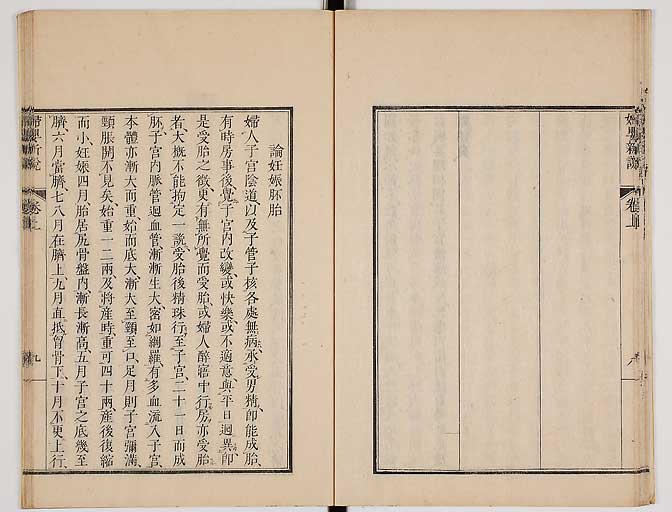 婦嬰新說
卷上
論妊娠胚胎
婦人子宮陰道以及子管子核各處無病承受男精卽能成胎、
有時房事後覺子宮內改變或快樂或不適意與平日迥異卽
是受胎之徵、更有無所覺而受胎或婦人醉寤中行房亦受胎
者、大概不能拘定一說、受胎後精珠行至子宮、二十一日而成
胚、子宮內脈管迴血管漸漸生大密如網羅有多血流入子宮、
本體亦漸大而重始而底大漸大至頸至口足月則子宮彌滿
頸脹開不見矣、始重一二兩及將產時重可四十兩產後復縮
而小、妊娠四月胎居尻骨盤內漸長漸高、五月子宮之底幾至
臍、六月當臍、七八月在臍上、九月直抵胷骨下、十月不更上行、
婦嬰新說
卷上
九